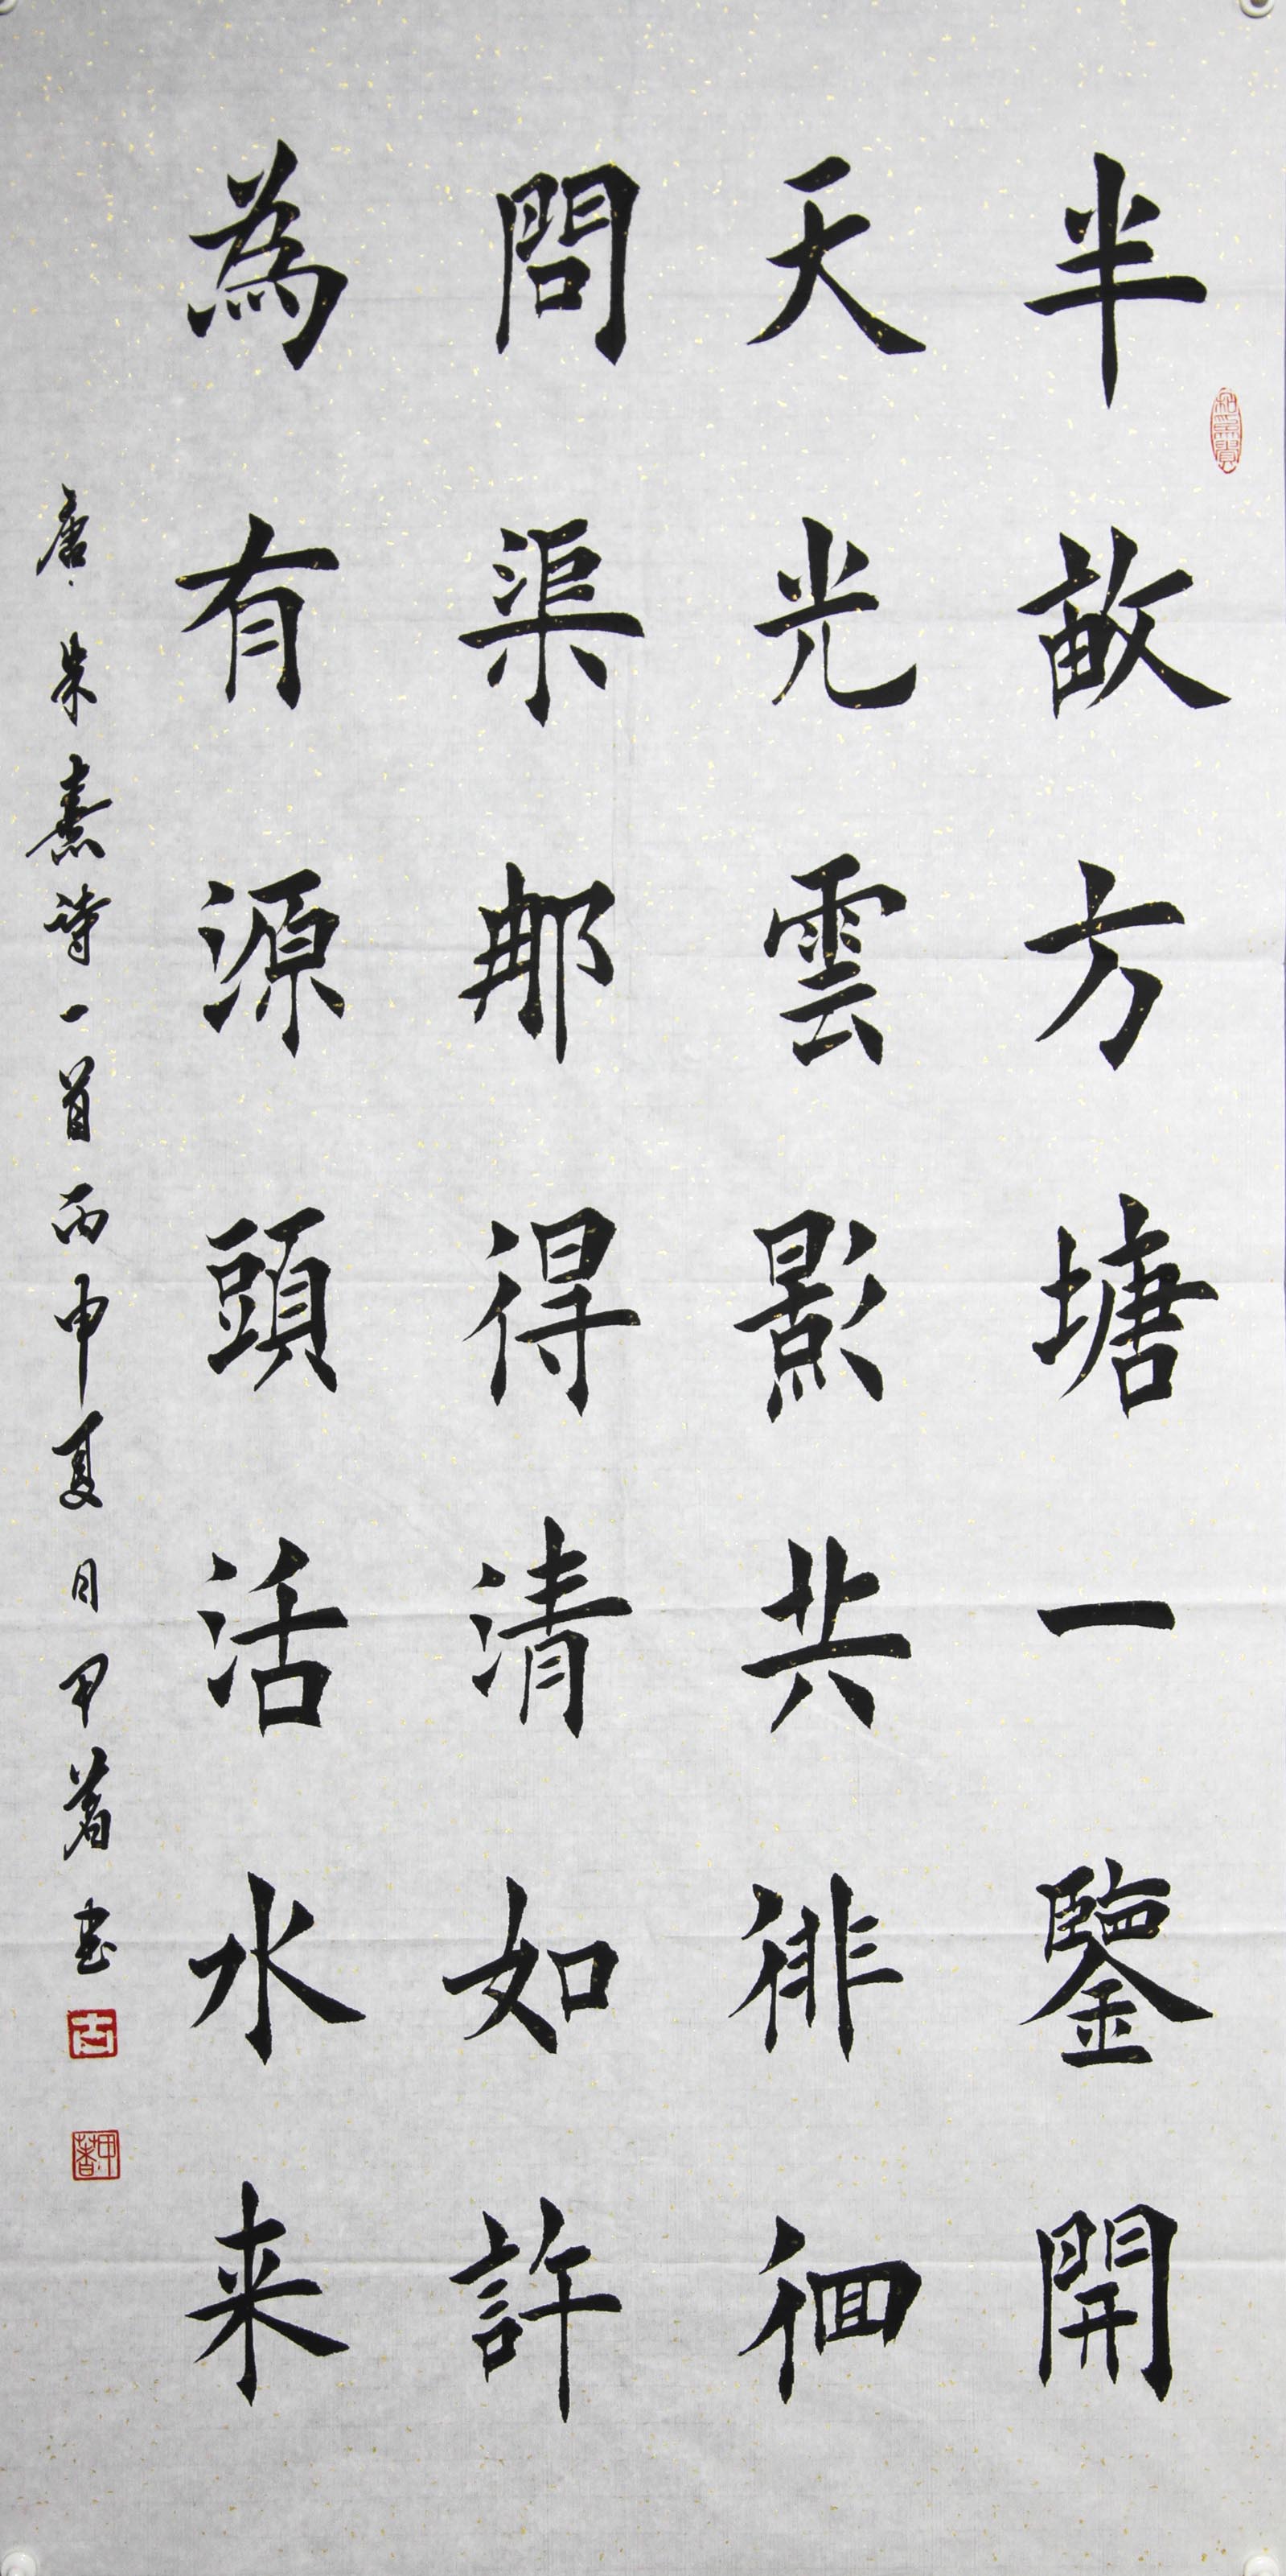 半畝方塘一鑒開
天光雲影共徘徊
問渠那得清如許
為有源頭活水来
唐朱熹詩一首丙申夏月甲著書